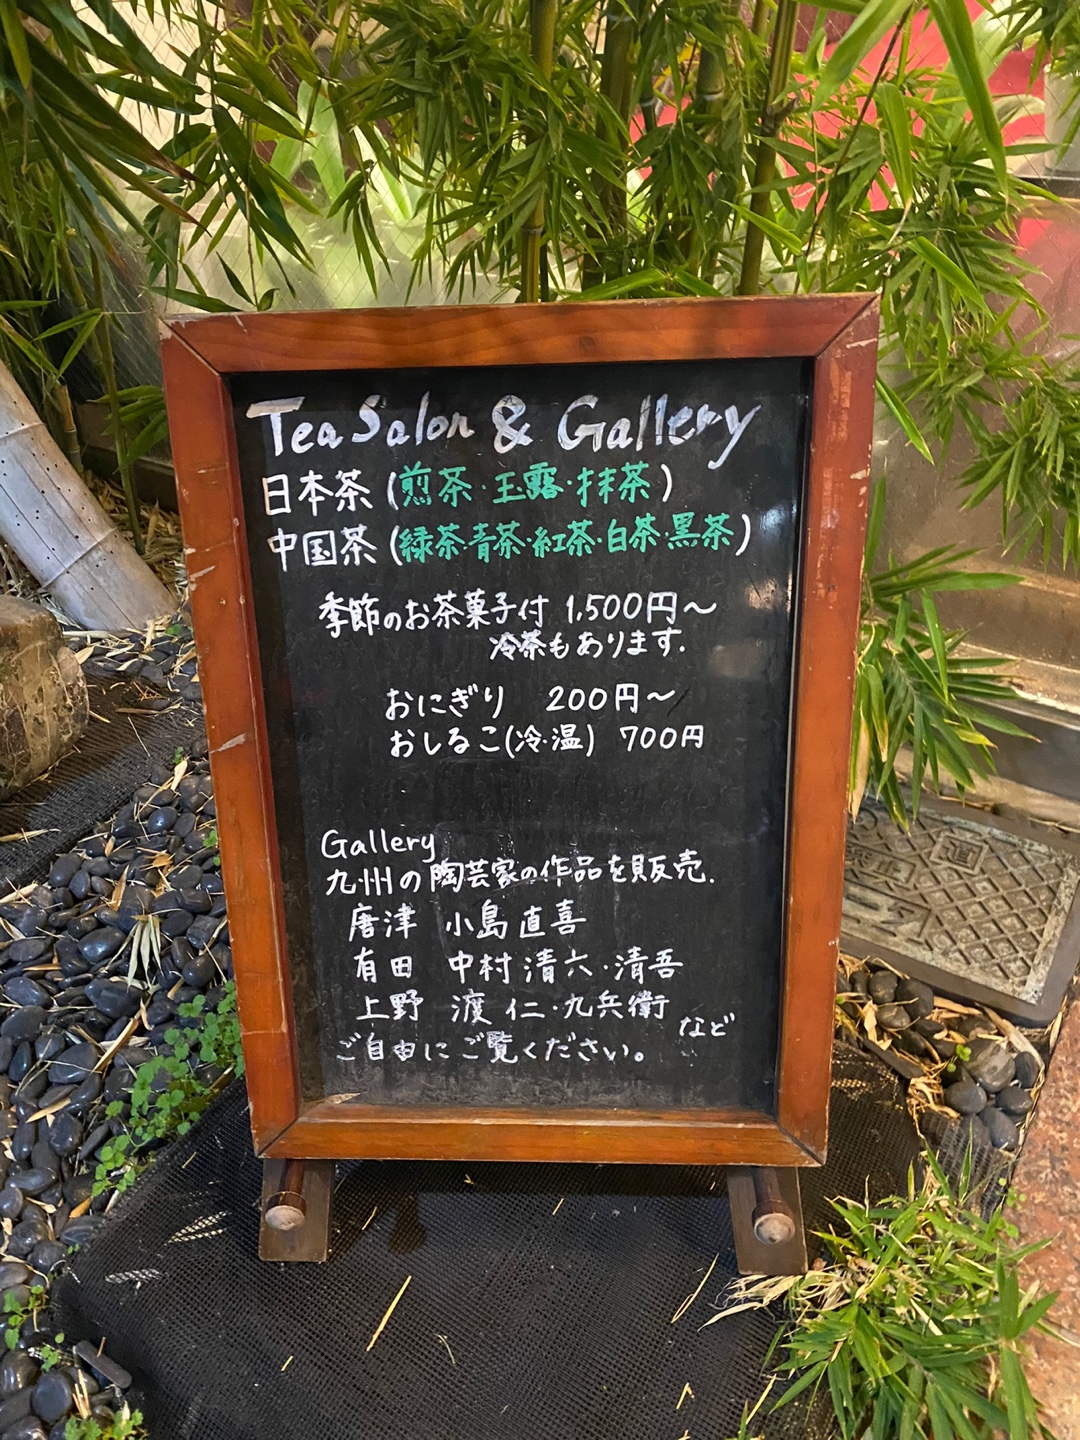 Tea Salon & Gallery
日本茶(煎茶・玉露・抹茶)
中国茶(緑茶・青茶・紅茶・白茶・黒茶)
季節のお茶菓子付 1,500円〜
冷茶もあります.
おにぎり 200円〜
おしるこ(冷・温) 700円
Gallery
九州の陶芸家の作品を販売.
唐津 小島直喜
有田 中村清六・清吾
上野 渡 仁・九兵衛
など
ご自由にご覧ください。